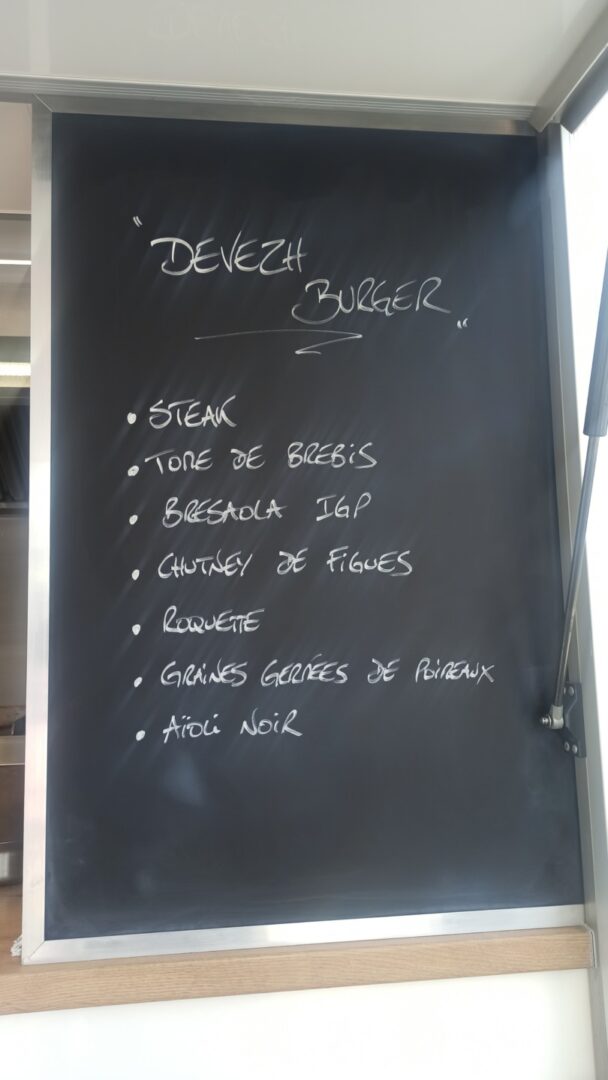 "DEVEZH
BURGER"
• STEAK
• TOME DE BREBIS
• BRESAOLA IGP
• CHUTNEY DE FIGUES
• ROQUETTE
• GRAINES GERMÉES DE POIREAUX
• AÏOLI NOIR